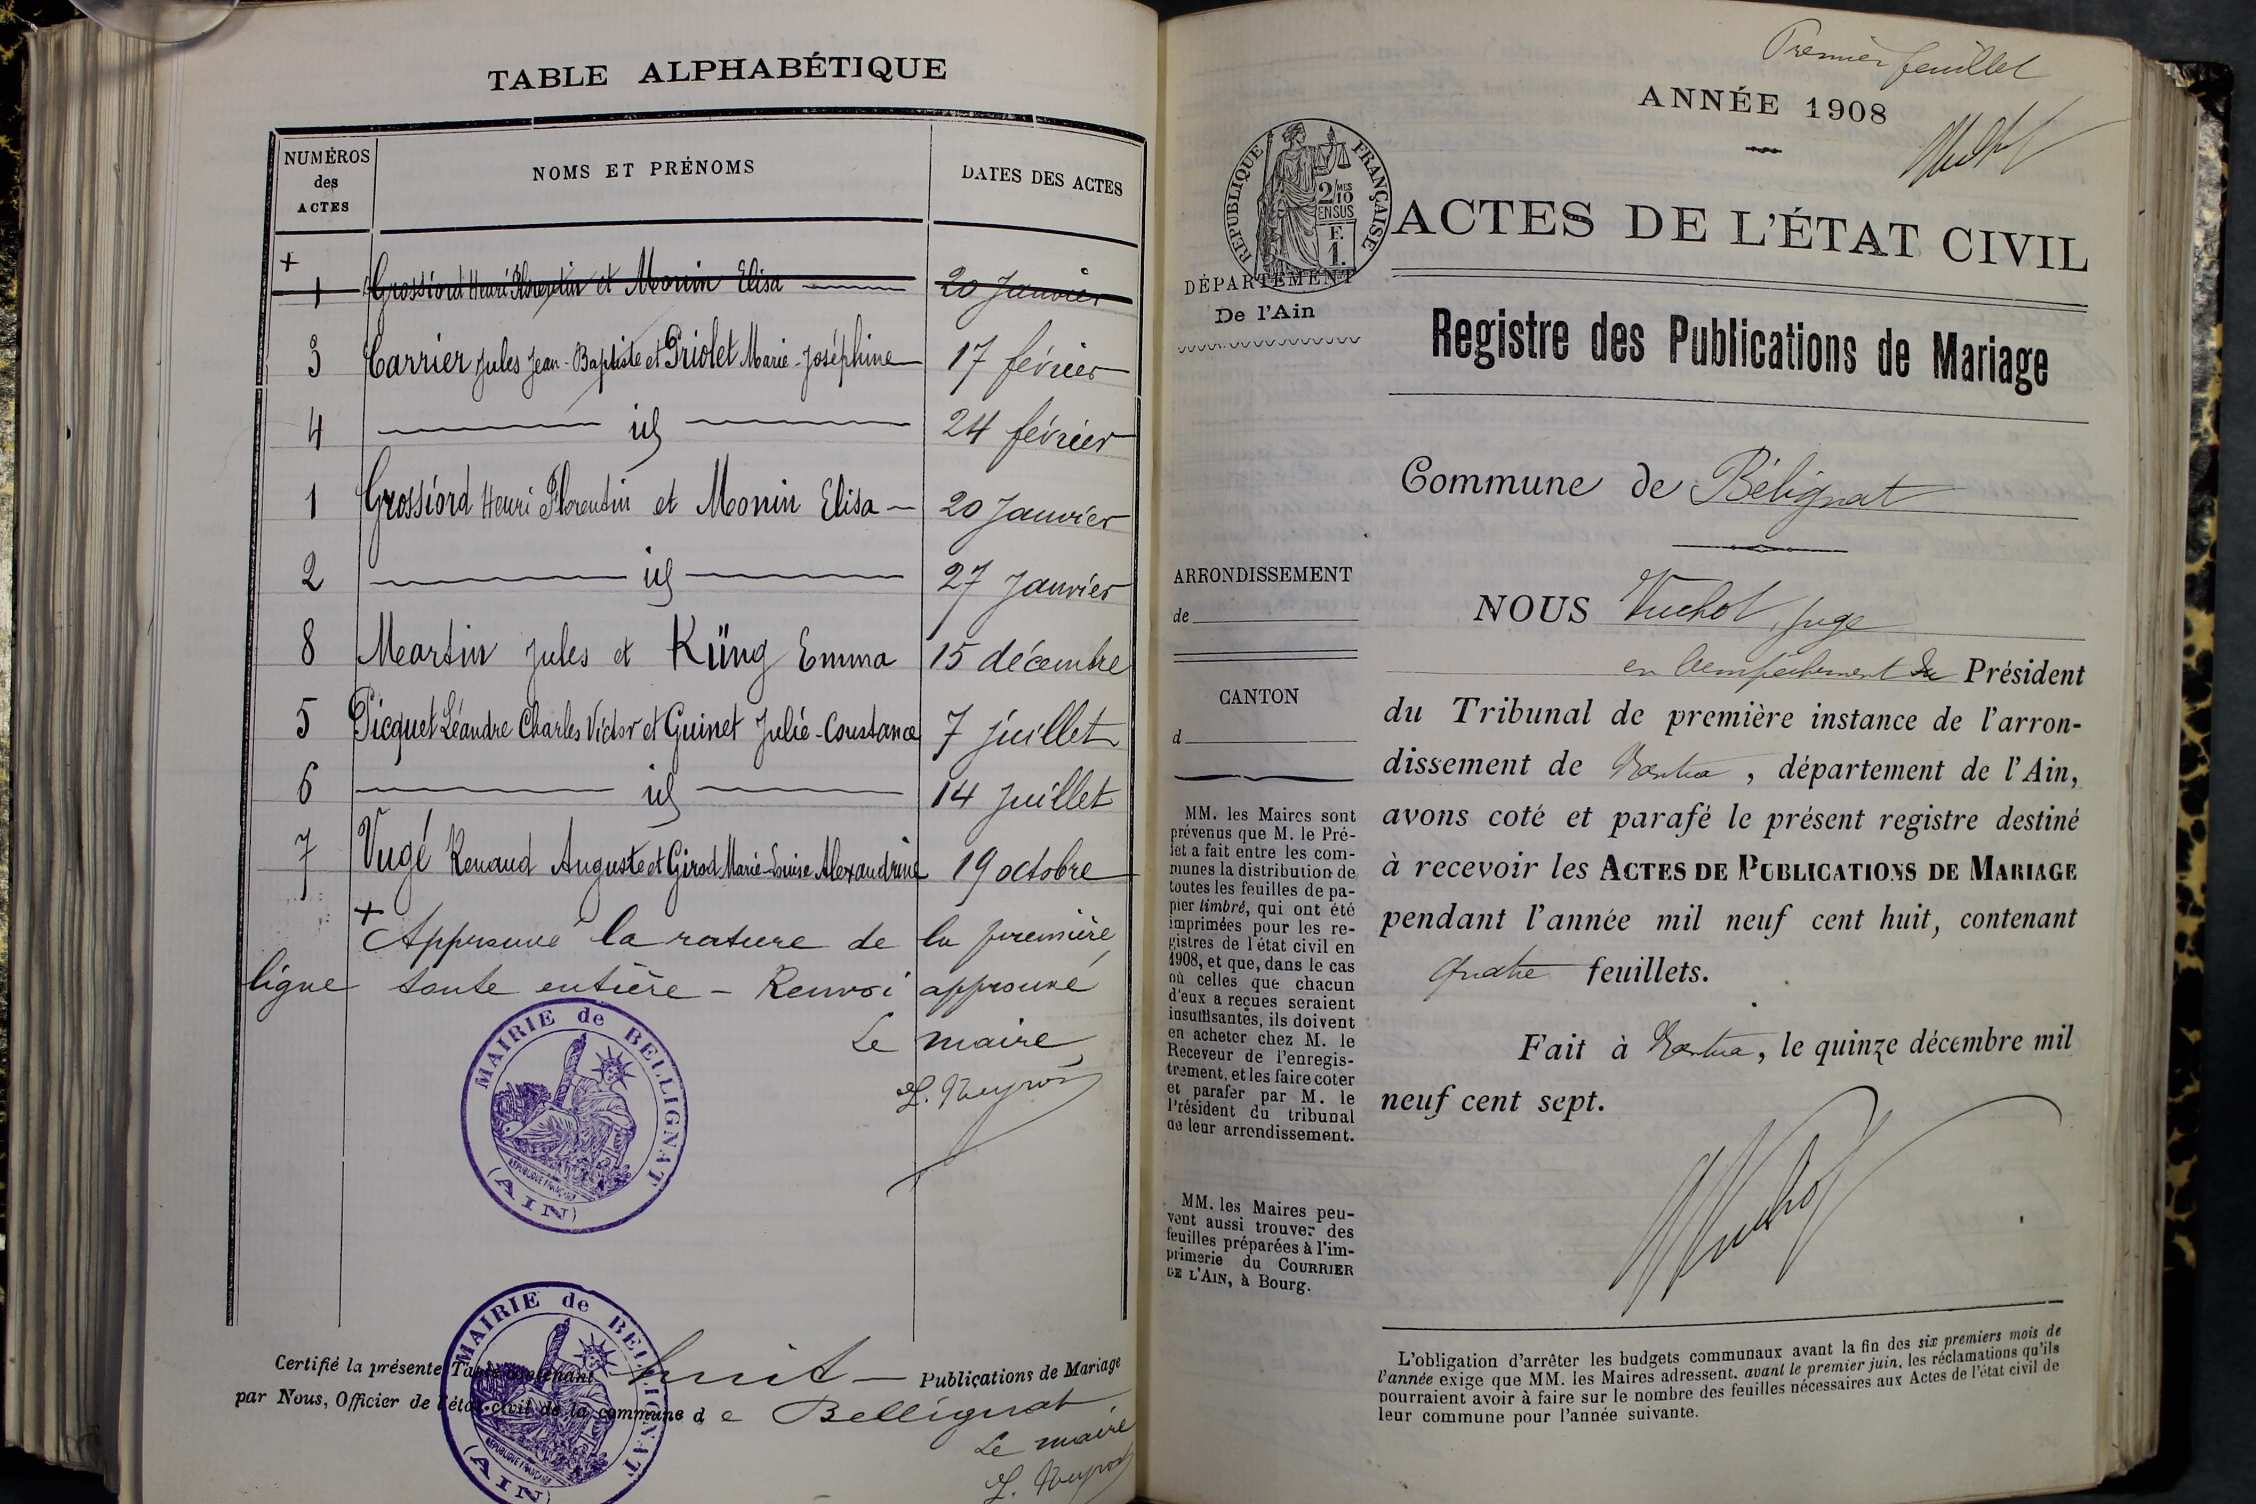 TABLE ALPHABÉTIQUE
NUMÉROS des ACTES
NOMS ET PRÉNOMS
DATES DES ACTES
+
1 Grossiord Henri Florentin et Monin Elisa 20 Janvier
3 Carrier Jules Jean-Baptiste et Priolet Marie-Joséphine 17 février
4 id 24 février
1 Grossiord Henri Florentin et Monin Elisa 20 Janvier
2 id 27 Janvier
8 Martin Jules et Küng Emma 15 décembre
5 Picquet Léandre Charles Victor et Guinet Julie-Constance 7 juillet
6 id 14 juillet
7 Vugé Renaud Auguste et Girod Marie-Louise Alexandrine 19 octobre
+ Approuvé la rature de la première
ligne toute entière - Renvoi approuvé
Le maire
MAIRIE de BELLIGNAT
RÉPUBLIQUE FRANÇAISE
(AIN)
MAIRIE de BELLIGNAT
RÉPUBLIQUE FRANÇAISE
(AIN)
Certifié la présente Table contenant huit - Publications de Mariage
par Nous, Officier de l'état-civil de la commune de Bellignat
Le maire
Premier feuillet
ANNÉE 1908
RÉPUBLIQUE FRANÇAISE
2/10 MES
EN SUS
F.
1.
ACTES DE L'ÉTAT CIVIL
DÉPARTEMENT
De l'Ain
Registre des Publications de Mariage
Commune de Bélignat
ARRONDISSEMENT
de
CANTON
d
MM. les Maires sont
prévenus que M. le Pré-
fet a fait entre les com-
munes la distribution de
toutes les feuilles de pa-
pier timbré, qui ont été
imprimées pour les re-
gistres de l'état civil en
1908, et que, dans le cas
où celles que chacun
d'eux a reçues seraient
insuffisantes, ils doivent
en acheter chez M. le
Receveur de l'enregis-
trement, et les faire coter
et parafer par M. le
Président du tribunal
de leur arrondissement.
MM. les Maires peu-
vent aussi trouver des
feuilles préparées à l'im-
primerie du COURRIER
DE L'AIN, à Bourg.
NOUS Vuchot, Juge
en l'empêchement du Président
du Tribunal de première instance de l'arron-
dissement de Nantua, département de l'Ain,
avons coté et parafé le présent registre destiné
à recevoir les ACTES DE PUBLICATIONS DE MARIAGE
pendant l'année mil neuf cent huit, contenant
quatre feuillets.
Fait à Nantua, le quinze décembre mil
neuf cent sept.
L'obligation d'arrêter les budgets communaux avant la fin des six premiers mois de
l'année exige que MM. les Maires adressent, avant le premier juin, les réclamations qu'ils
pourraient avoir à faire sur le nombre des feuilles nécessaires aux Actes de l'état civil de
leur commune pour l'année suivante.